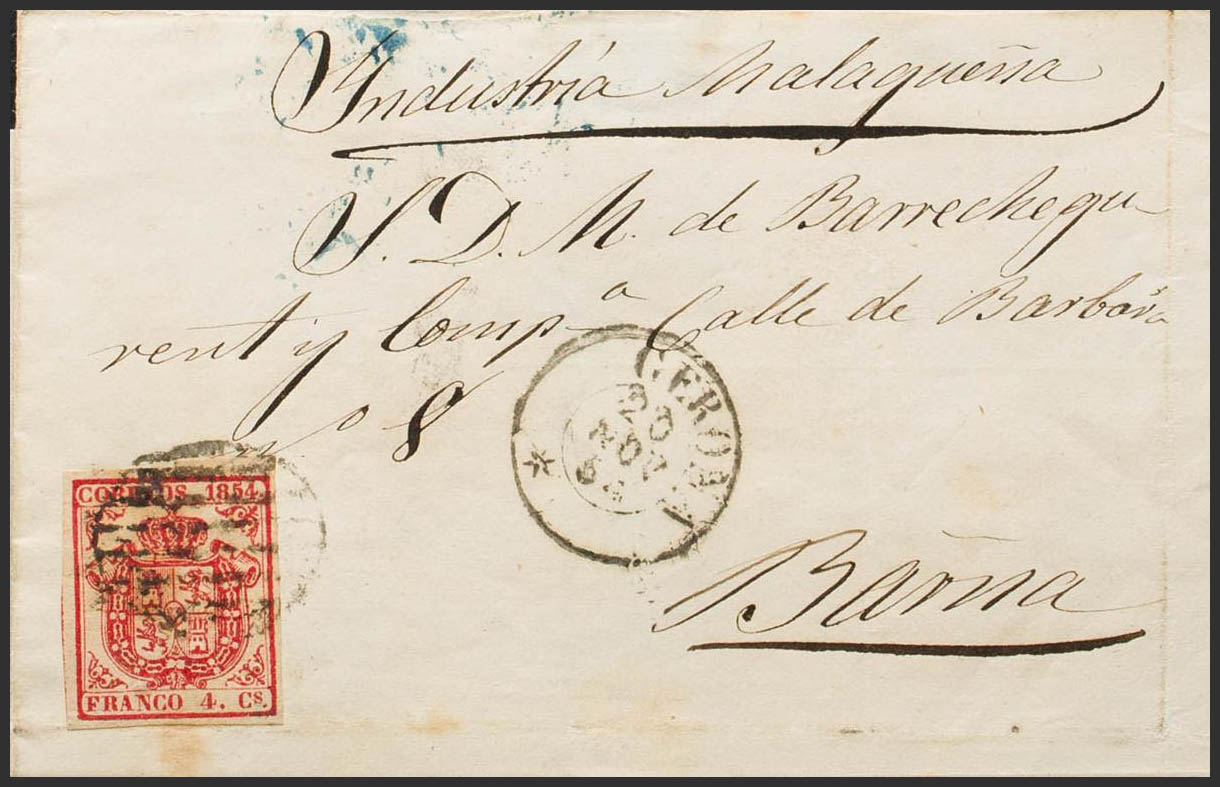 Industria Malagueña
S. D. M. de Barrechegu-
rent y Comp.a Calle de Barbará
Nº 8
GERONA
30
NOV
CORREOS 1854
Barna
FRANCO 4. Cs.